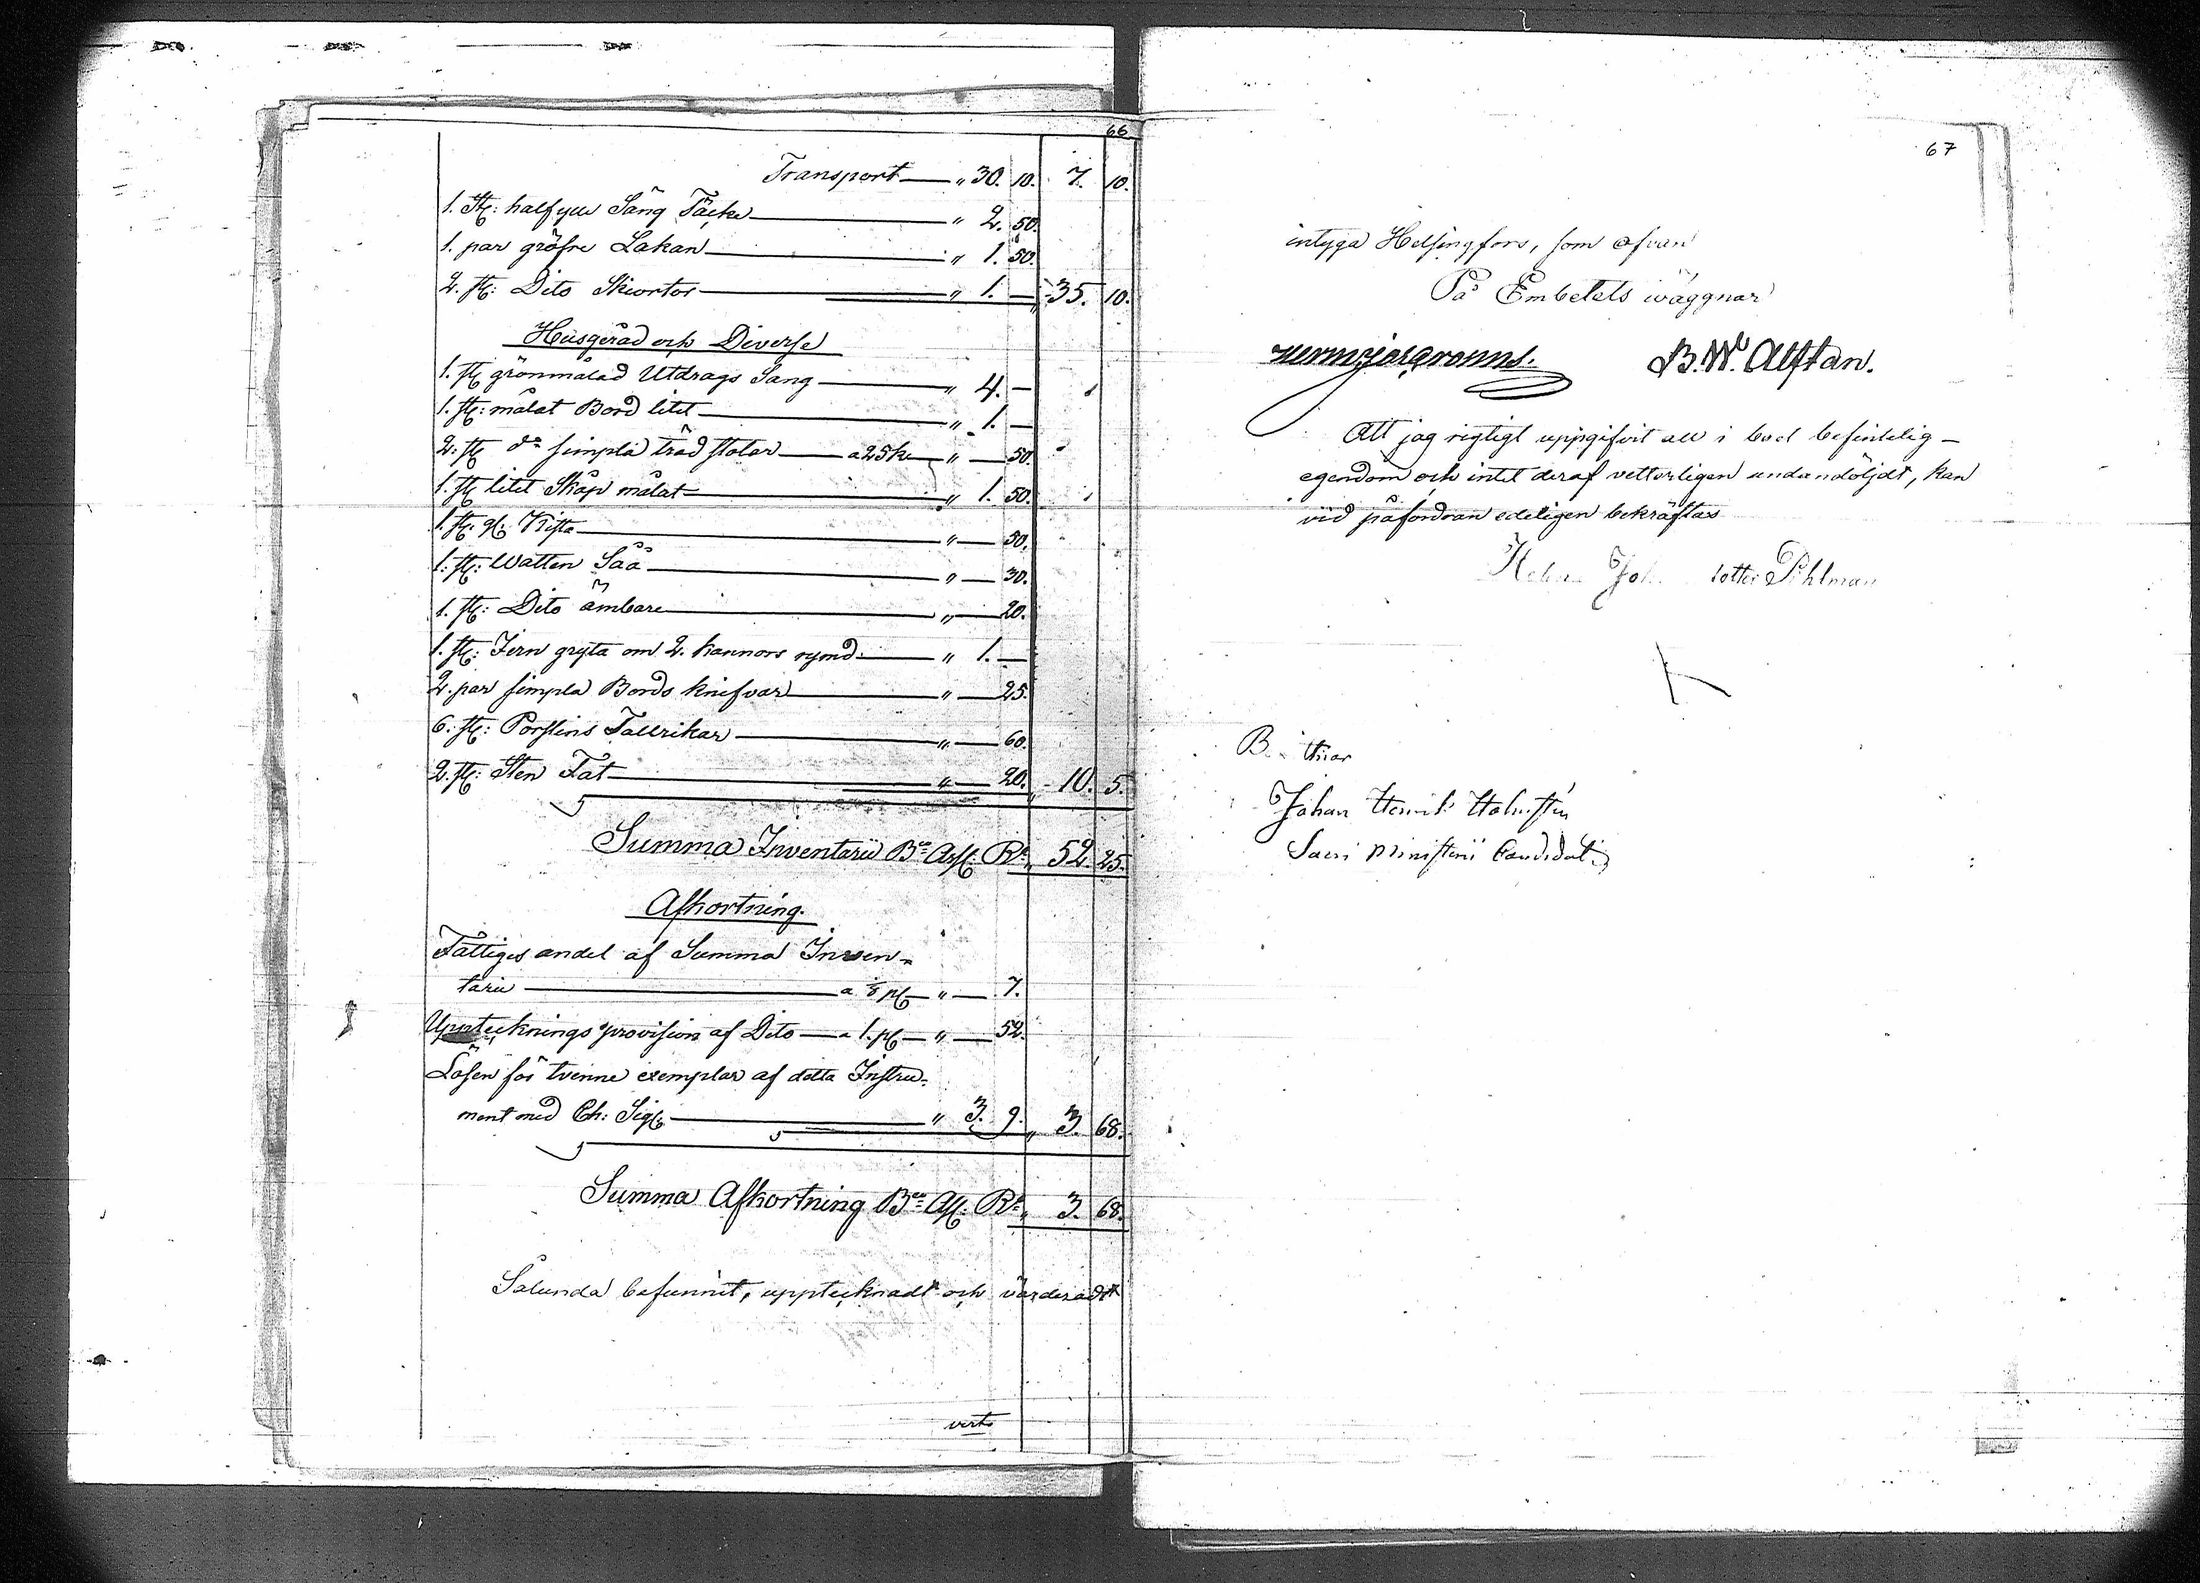 66
Transport — " 30. 10. 7. 10.
1. st: halfylle Säng Täcke — " 2. 50.
1. par gröfre Lakan — " 1. 50.
2. st: Dito Skiortor — " 1. — " 35. 10.
Husgeråd och Diverse
1. st grönmålad Utdrags Säng — " 4. —
1. st: målat Bord litet — " 1. —
2. st do simpla träd stolar — a 25 k — " — 50.
1. st litet Skåp målat — " 1. 50.
1. st. gl: Kista — " — 50.
1. st: Watten Så — " — 30.
1. st: Dito ämbare — " — 20.
1. st: Jern gryta om 2. kannors rymd — " 1. —
2. par simpla Bords knifvar — " — 25.
6. st: Porslins Tallrikar — " — 60.
2. st: Sten Fat — " — 20. " 10. 5.
Summa Inventarii Bco Ass: Rb " 52. 25.
Afkortning.
Fattiges andel af Summa Inven-
tarii — a 1/8 pC — " — 7.
Uppteknings provision af Dito — a 1. pC — " — 52.
Lösen för tvenne exemplar af detta Instru-
ment med Ch: Sig: — " 3. 9. " 3. 68.
Summa Afkortning Bco Ass: Rb " 3. 68.
Sålunda befunnit, upptecknadt och värderadt
verte
67
intyga Helsingfors, som ofvan
På Embetets wäggnar
B. W. Alftan.
Att jag rigtigt uppgifvit all i boet befintelig
egendom och intet deraf vetterligen undandöljdt, kan
vid påfordran edeligen bekräftas
Pihlman
Johan Henrik Holmstén
Sacri Ministerii Candidat